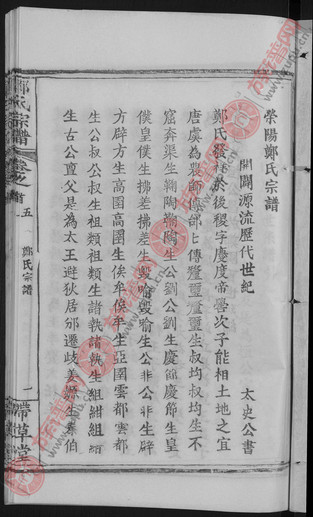 滎陽鄭氏宗譜
開闢源流歷代世紀
太史公書
鄭氏發祥於后稷字慶度帝嚳次子能相土地之宜
唐虞為農師傳部七傳璽璽生叔均叔均生不
窋奔渠生鞠陶鞠陶生公劉公劉生慶節慶節生皇
僕皇僕生拂差拂差生毀喻毀喻生公非公非生辟
方辟方生高圉高圉生侯牟侯牟生亞圉雲都雲都
生公叔公叔生祖類祖類生諸執諸執生組紺組紺
生古公亶父是為太王避狄居邠遷岐姜生泰伯
鄭氏宗譜
卷之首
五
鄭氏宗譜
一
帶草堂